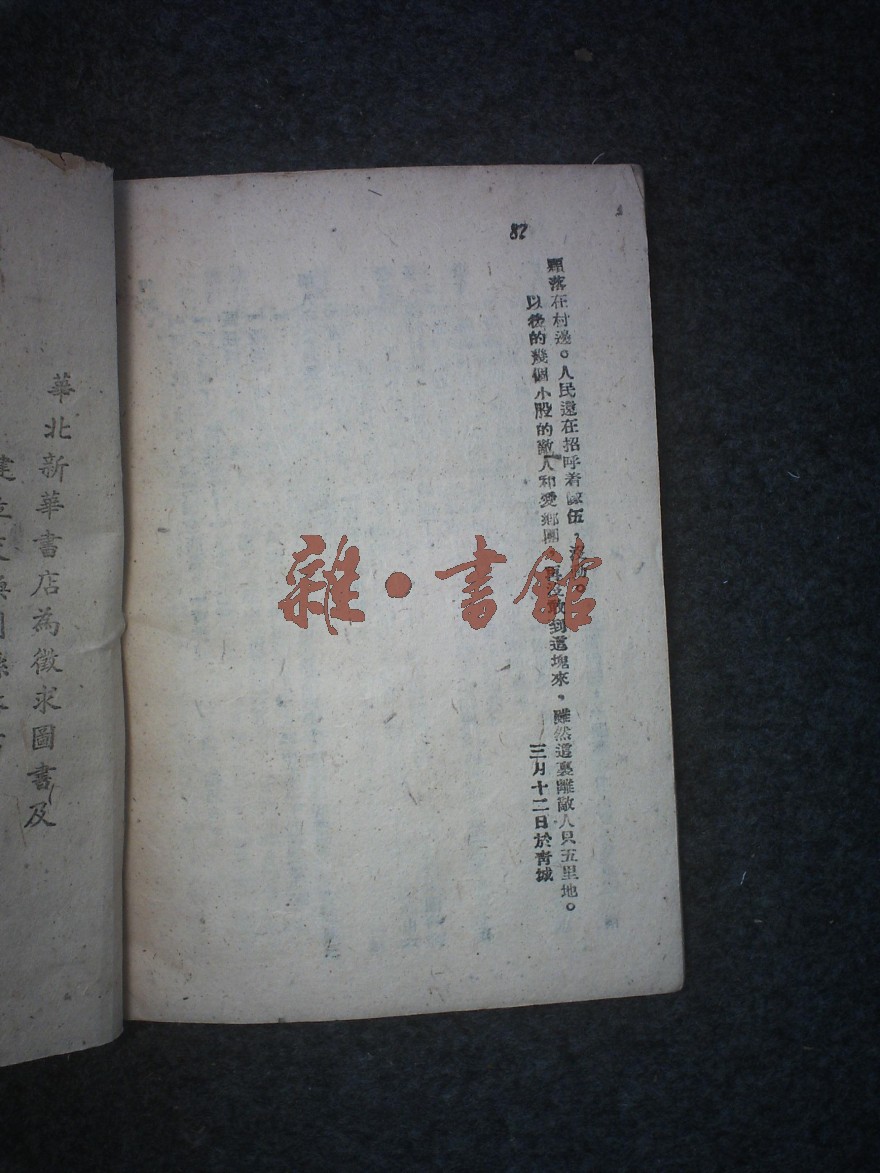 82
落在村邊。人民還在招呼着隊伍，
以後的幾個小股的敵人和愛鄉團，再沒敢到這塊來，雖然這裏離敵人只五里地。
三月十二日於青城
雜·書館
華北新華書店為徵求圖書及
建立